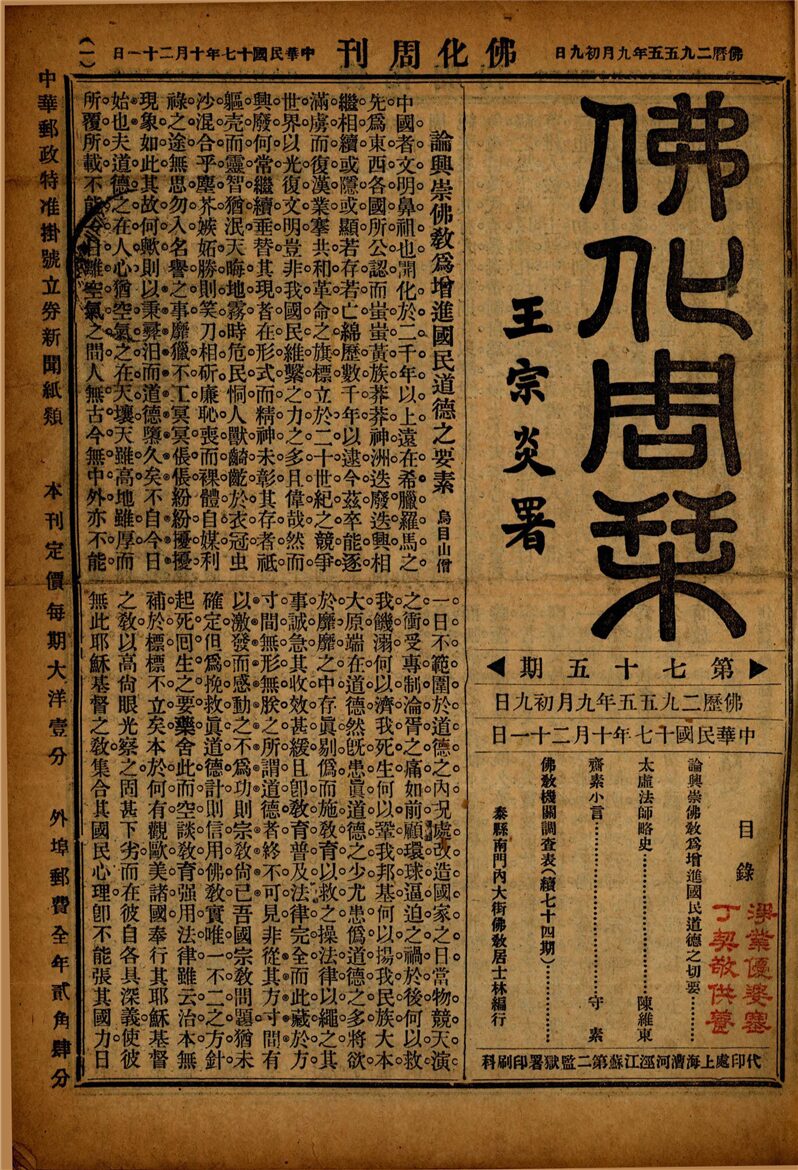 佛曆二九五五年九月初九日
佛化周刊
中華民國十七年十月二十一日
(一)
佛化周栞
王宗炎署
第七十五期
佛歷二九五五年九月初九日
中華民國十七年十月二十一日
目錄
論興崇佛教為增進國民道德之切要………
太虛法師略史………陳維東
齋素小言………守素
佛教機關調查表(續七十四期)………
泰縣南門內大街佛教居士林編行
深業優婆塞
丁契敬供養
代印處上海漕河涇江蘇第二監獄署印刷科
論興崇佛敎爲增進國民道德之要素　烏目山僧
中國者文明鼻祖也開化於二千年以上遠在希臘羅馬之
先爲東西各國所公認而蚩蚩黃族莽莽神洲迭廢迭興相
繼相續或隱或顯若存若亡綿歷數千年以逮今茲卒能逐
滿虜而復漢業蹇共和革命之旗標立於二十世紀之競爭
世界以光復文明豈非我國民維繫之力之多且偉哉然而
興廢何常繼續垂替其現者在形式而精神未彰其存者祇
軀壳而靈智猶泯天晦地霧時危民恫人獸齮齕於衣冠虫
沙混合乎塵芥嫉妬勝則笑刀相斫廉恥喪而裸體自媒利
祿之途無思勿入名譽之事靡獵不工冥冥倀倀紛紛擾擾
現象如此其故何歟則以秉彝汨而道德墮久矣不自今日
始也夫道德之在人心猶空氣之在天壤天雖高地雖厚而
所覆所載不能令自離空氣之間人無古今無中外亦不能
一日不範圍於道德之內况處改造國家之日當物競天演
之衝受專制淪胥之痛如前顧環球逼迫之禍於後何以救
我饑溺何以濟我死生何以鞏我邦基何以揚我民族大本
大原端在道德然旣患眞道德之少尤患僞道德之多將欲
於靡靡之中存眞剔僞而施敎育以救之操法律以繩之其
事誠急其收效甚緩且卽敎育普及法律完全而此藏於方
寸間無形無朕之所謂道德者終不可見非從其方寸間有
以激發而感動之不爲功則宗敎尙已吾國宗敎問題猶未
確定但爲挽救眞道德計則信用佛敎實唯一不二之方針
起死回生之要藥舍此而空談敎育强用法律雖云治本無
補於標標不立矣本於何有觀歐美諸國奉行其耶穌基督
之敎以高尙眼光察之固甚下劣而在彼自各具深義使彼
無此耶穌基督之敎集合其國民心理卽不能張其國力日
中華郵政特准掛號立券新聞紙類　本刊定價每期大洋壹分　外埠郵費全年貳角肆分